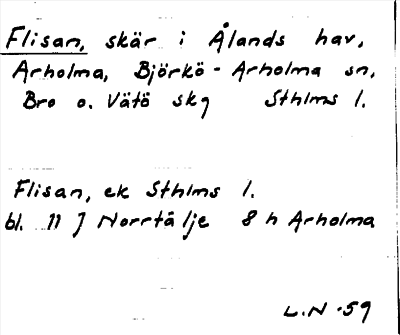 Flisan, skär i Ålands hav,
Arholma, Björkö-Arholma sn,
Bro o. Vätö skg Sthlms l.
Flisan, ek Sthlms l.
bl. 11 J Norrtälje 8 h Arholma
L.N -59